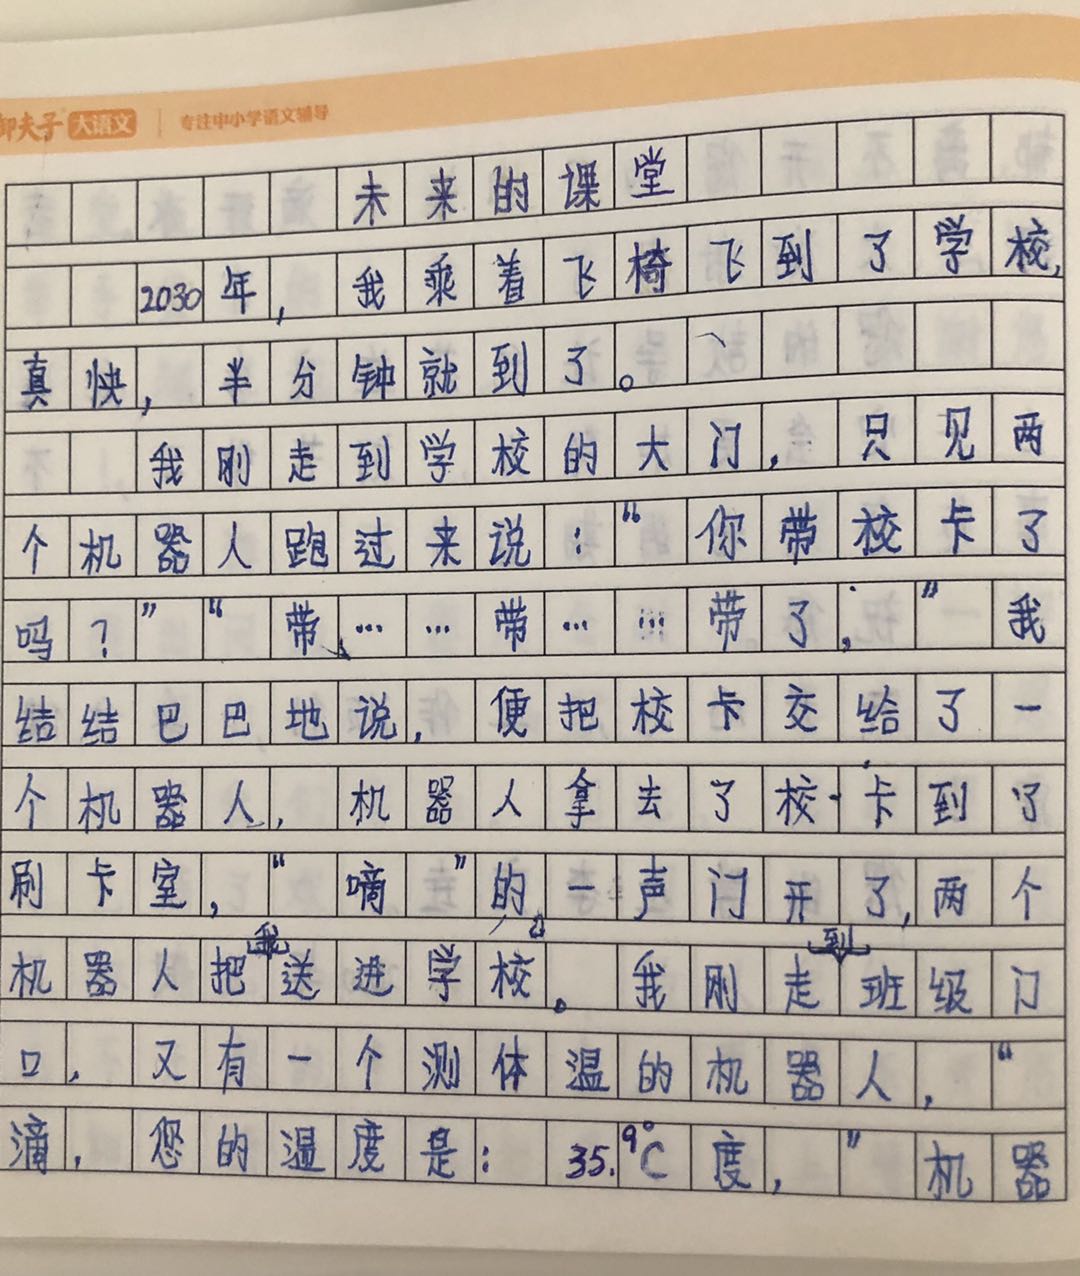 御夫子 大语文 | 专注中小学语文辅导
未来的课堂
2030年，我乘着飞椅飞到了学校，
真快，半分钟就到了。
我刚走到学校的大门，只见两
个机器人跑过来说：“你带校卡了
吗？”“带、……带……带了，”我
结结巴巴地说，便把校卡交给了一
个机器人，机器人拿去了校卡到了
刷卡室，“嘀”的一声门开了，两个
机器人把我送进学校。我刚走到班级门
口，又有一个测体温的机器人，“
滴，您的温度是：35.9℃度，”机器